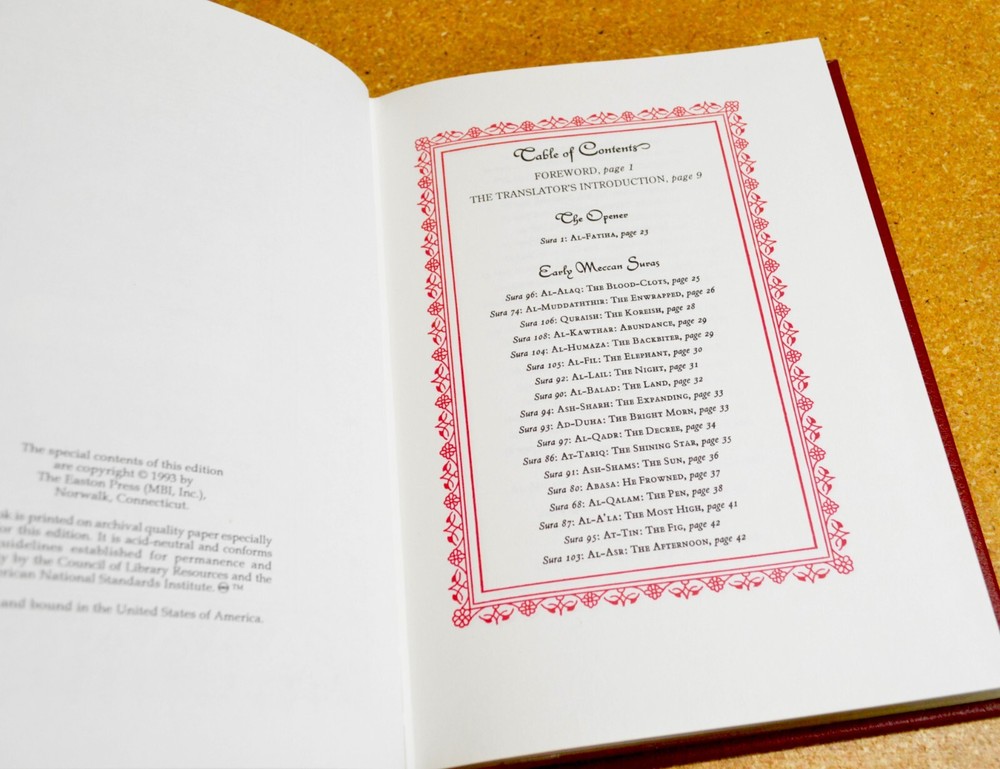 The special contents of this edition
are copyright © 1993 by
The Easton Press (MBI, Inc.),
Norwalk, Connecticut.
is printed on archival quality paper especially
for this edition. It is acid-neutral and conforms
guidelines established for permanence and
by the Council of Library Resources and the
American National Standards Institute. ♾™
and bound in the United States of America.
Table of Contents
FOREWORD, page 1
THE TRANSLATOR'S INTRODUCTION, page 9
The Opener
Sura 1: Al-Fatiha, page 23
Early Meccan Suras
Sura 96: Al-Alaq: The Blood-Clots, page 25
Sura 74: Al-Muddaththir: The Enwrapped, page 26
Sura 106: Quraish: The Koreish, page 28
Sura 108: Al-Kawthar: Abundance, page 29
Sura 104: Al-Humaza: The Backbiter, page 29
Sura 105: Al-Fil: The Elephant, page 30
Sura 92: Al-Lail: The Night, page 31
Sura 90: Al-Balad: The Land, page 32
Sura 94: Ash-Sharh: The Expanding, page 33
Sura 93: Ad-Duha: The Bright Morn, page 33
Sura 97: Al-Qadr: The Decree, page 34
Sura 86: At-Tariq: The Shining Star, page 35
Sura 91: Ash-Shams: The Sun, page 36
Sura 80: Abasa: He Frowned, page 37
Sura 68: Al-Qalam: The Pen, page 38
Sura 87: Al-A'la: The Most High, page 41
Sura 95: At-Tin: The Fig, page 42
Sura 103: Al-Asr: The Afternoon, page 42